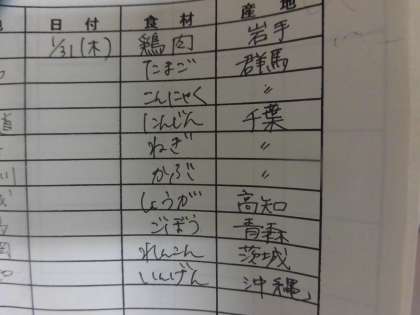 日付 食材 産地
1/31(木) 鶏肉 岩手
たまご 群馬
こんにゃく 〃
にんじん 千葉
ねぎ 〃
かぶ 〃
しょうが 高知
ごぼう 青森
れんこん 茨城
いんげん 沖縄